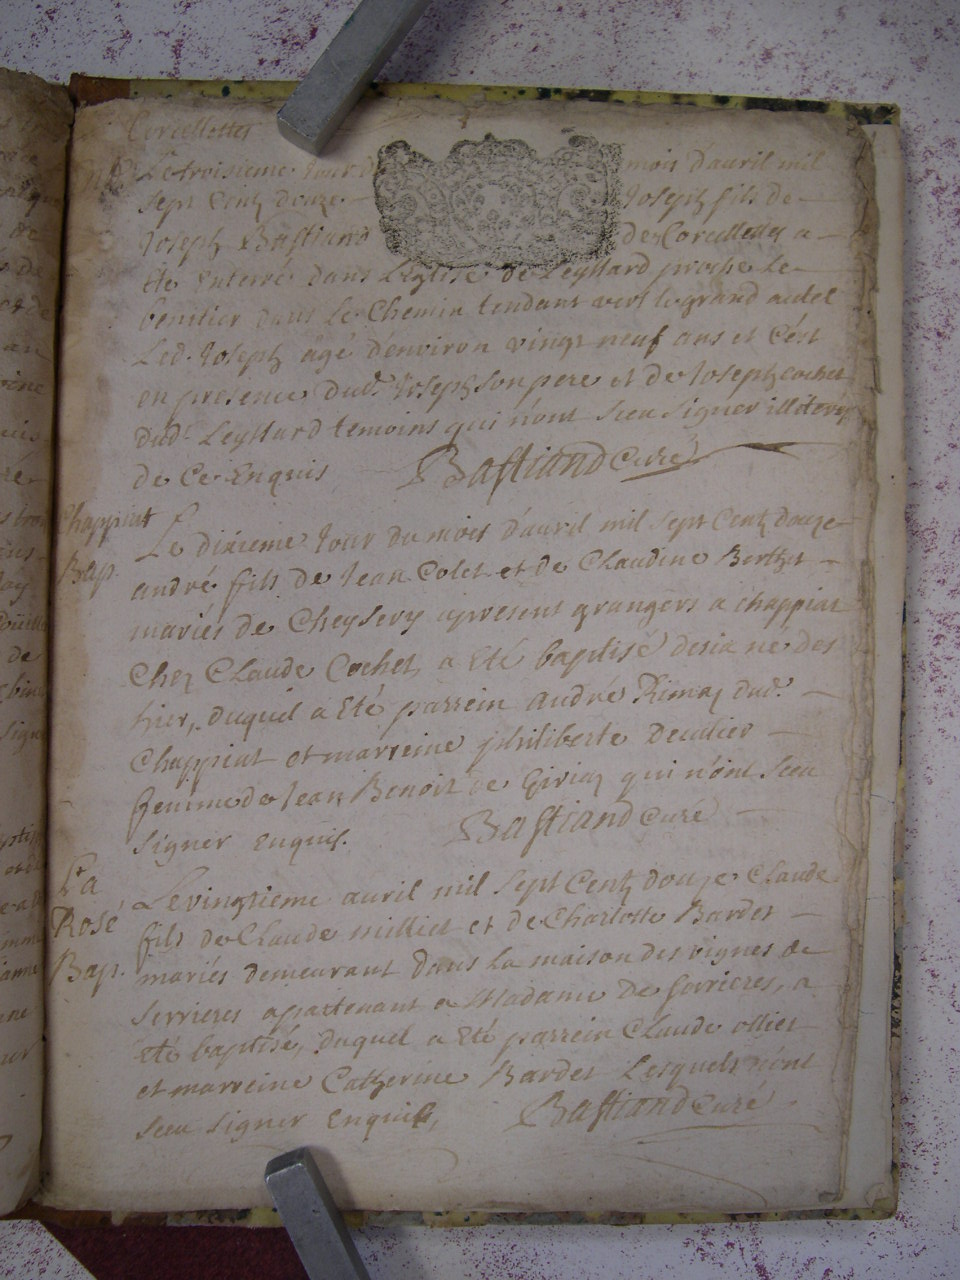 Corcellettes
Le troisieme Jour d mois d'auril mil
sept Centz douze Joseph fils de
Joseph Bastiand de Corcelles a
été enterré dans L'Eglise de Leyssard proche Le
benitier dans Le Chemin tendant vers le grand autel
Led. Joseph agé d'environ vingt neuf ans et C'est
en presence dud. Joseph son pere et de Joseph cochet
dud. Leyssard temoins qui n'ont sceu signer
de Ce Enquis Bastiand Curé
Chappiat
Bap.
Le dixieme Jour du mois d'auril mil sept Centz douze
andré fils de Jean Colet et de Claudine Berthet
mariés de apresent grangers a chappiat
Chez Claude Cochet, a Eté baptisé desia né des
hier, duquel a Eté parrein André dud.
Chappiat et marreine philiberte
femme de Jean Benoit de qui n'ont sceu
signer Enquis. Bastiand Curé
La
Rose
Bap.
Le vingtieme auril mil sept Centz douze Claude
fils de Claude milliet et de Charlotte Bardet
mariés demeurant dans La maison des vignes de
Serrieres apartenant a Madame De a
eté baptisé, duquel a Eté parrein Claude ollier
et marreine Catherine Bardet Lesquels n'ont
sceu signer Enquis, Bastiand Curé